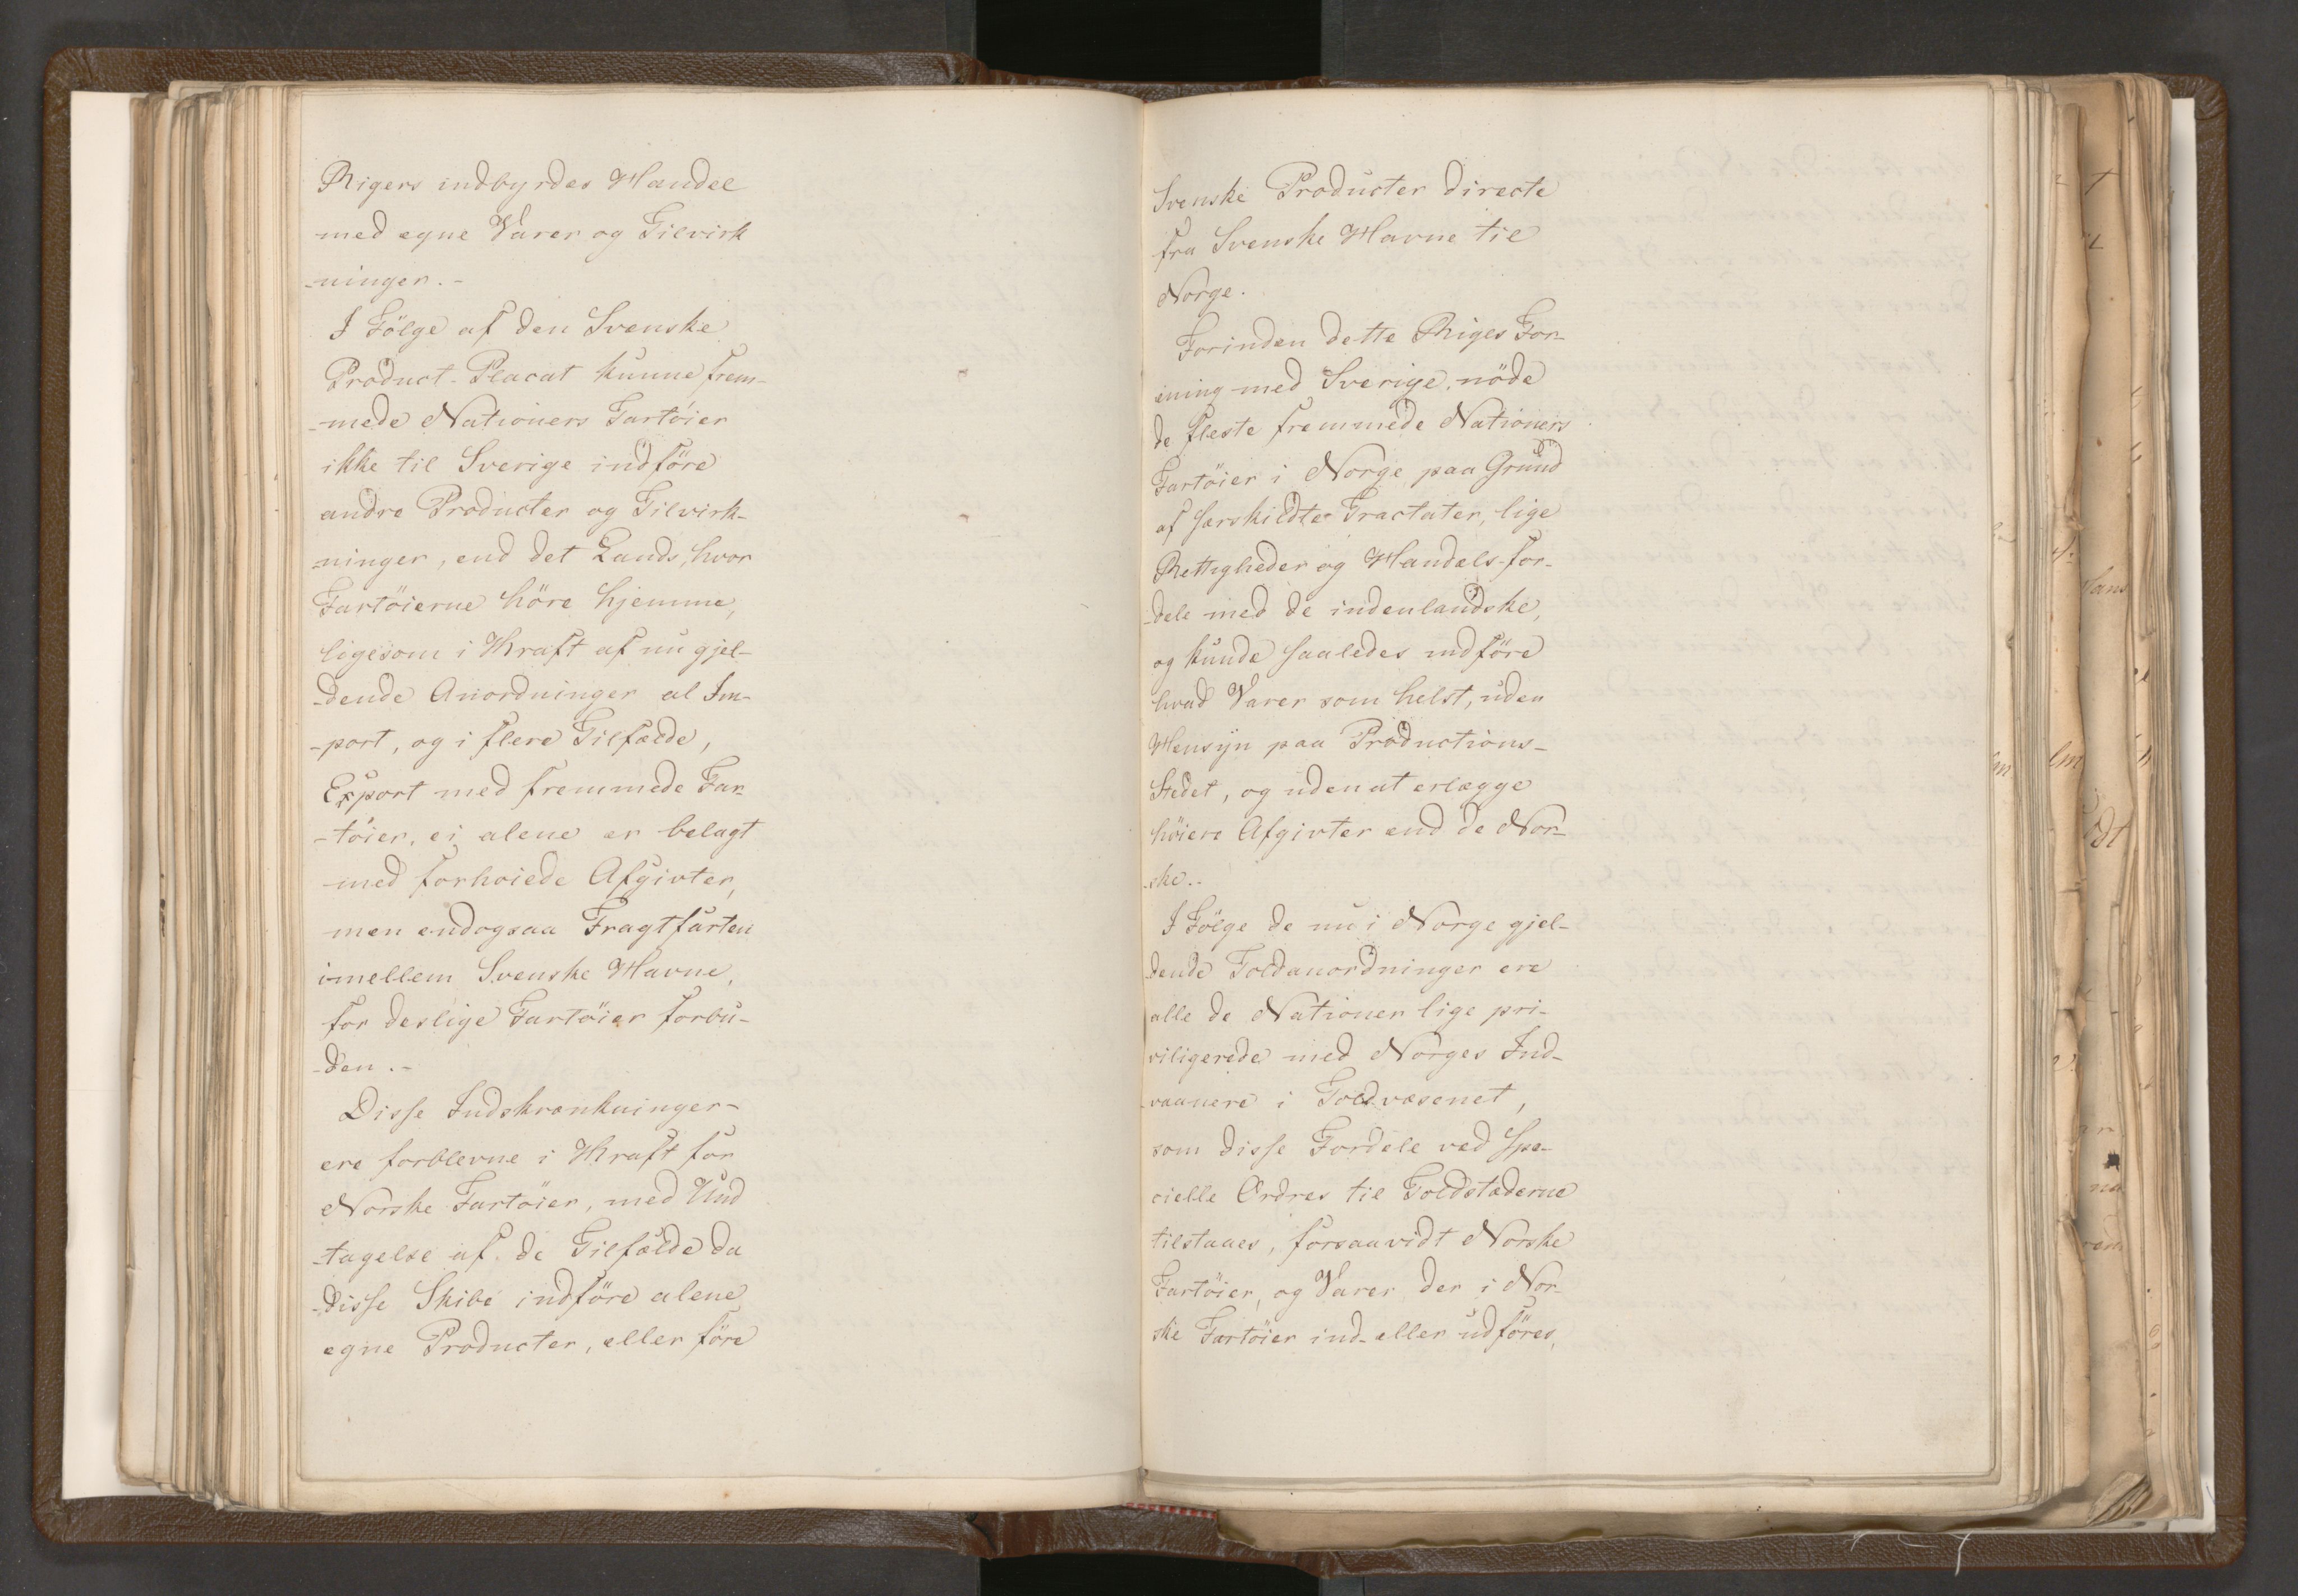 Rigers indbyrdes Handel
med egne Varer og Tilvirk
-ninger.-
I Fölge af den Svenske
Product-Placat kunne frem-
-mede Nationers Fartöier
ikke til Sverige indföre
andre Producter og Tilvirk-
-ninger, end det Lands, hvor
Fartöierne höre hjemme,
ligesom i Kraft af nu gjel-
-dende Anordninger al Im-
-port, og i flere Tilfælde,
Export med fremmede Far-
-töier, ei alene er belagt
med forhöiede Afgivter,
men endogsaa Fragtfarten
imellem Svenske Havne,
for deslige Fartöier forbu-
-den.-
Disse Indskrænkninger
ere forblevne i Kraft for
Norske Fartöier, med Und
-tagelse af de Tilfælde da
disse Skibe indföre alene
egne Producter, eller före
Svenske Producter directe
fra Svenske Havne til
Norge.
Forinden dette Riges For-
ening med Sverige, nöde
de fleste fremmede Nationers
Fartöier i Norge paa Grund
af særskildte Tractater, lige
Rettigheder og Handels-for-
-dele med de indenlandske,
og kunde saaledes indföre
hvad Varer som helst, uden
Hensyn paa Productions-
Stedet, og uden at erlægge
höiere Afgivter end de Nor-
-ske.-
I Fölge de nu i Norge gjel-
-dende Toldanordninger ere
alle de Nationer lige pri-
viligerede med Norges Ind-
-vaanere i Toldvæsenet,
som disse Fordele ved Spe-
cielle Ordres til Toldstæderne
tilstaaes, forsaavidt Norske
Fartöier, og Varer der i Nor-
ske Fartöier ind- eller udföres,